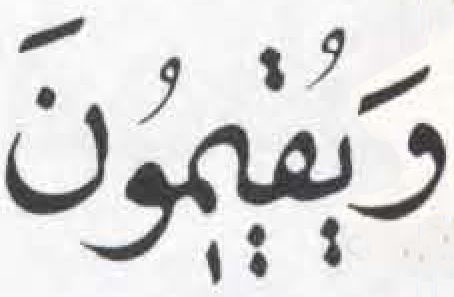 وَيُقِيمُونَ